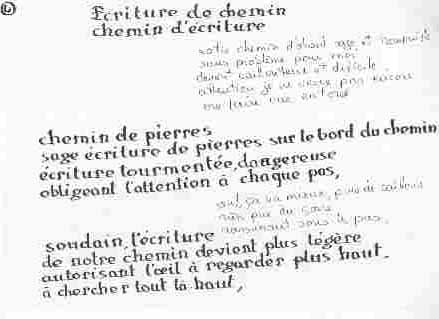 Ecriture de chemin
chemin d'écriture
notre chemin d'abord sage et
sans problème pour moi
devient caillouteux et difficile
attention je ne veux pas encore
me faire une entorse
chemin de pierres
sage écriture de pierres sur le bord du chemin
écriture tourmentée, dangereuse
obligeant l'attention à chaque pas,
ouf, ça va mieux, plus de cailloux
rien que du
sous le pas,
soudain, l'écriture
de notre chemin devient plus légère
autorisant l'œil à regarder plus haut.
à chercher tout là haut,